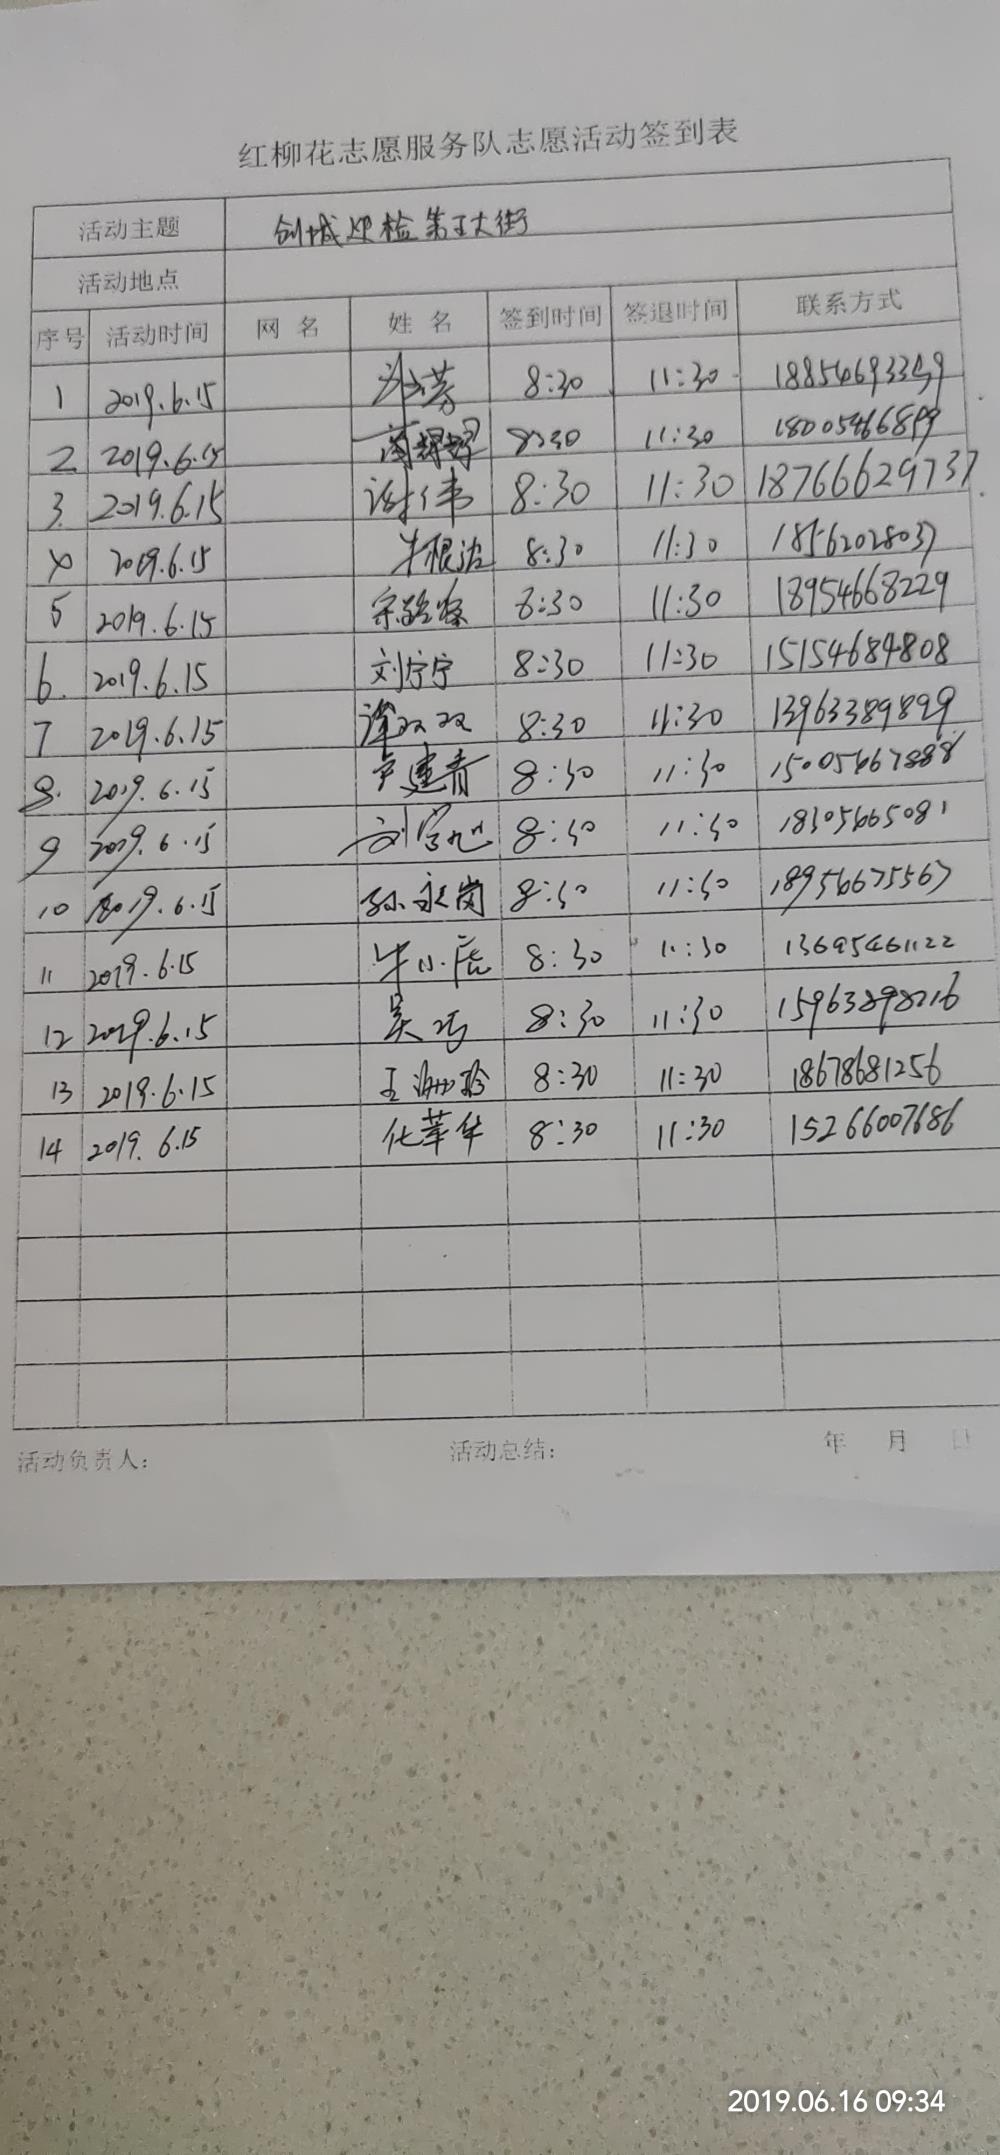 红柳花志愿服务队志愿活动签到表
活动主题 创城迎检第 大街
活动地点
序号 活动时间 网名 姓名 签到时间 签退时间 联系方式
1 2019.6.15 8:30 11:30
2 2019.6.15 8:30 11:30 18005466899
3. 2019.6.15 谢伟 8:30 11:30 18766629737
4 2019.6.15 牛根法 8:30 11:30 18562028037
5 2019.6.15 8:30 11:30 18954668229
6. 2019.6.15 刘宁宁 8:30 11:30 15154684808
7 2019.6.15 谭双双 8:30 11:30 13963389899
8. 2019.6.15 建青 8:30 11:30 15005467888
9 2019.6.15 8:30 11:30 18305465081
10 2019.6.15 孙永岗 8:30 11:30
11 2019.6.15 牛小虎 8:30 11:30 13695461122
12 2019.6.15 吴 8:30 11:30 15963898216
13 2019.6.15 王 玲 8:30 11:30 18678681256
14 2019.6.15 化苹华 8:30 11:30 15266007686
活动负责人: 活动总结: 年 月 日
2019.06.16 09:34